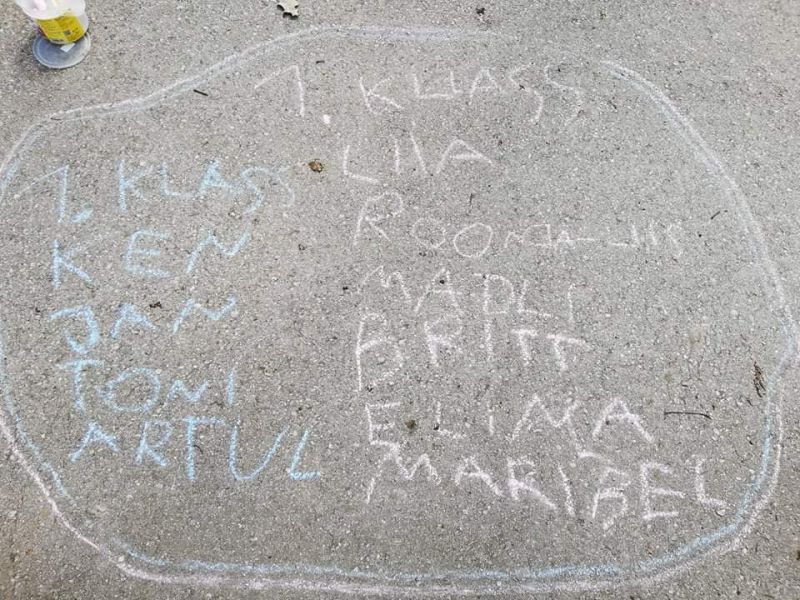 1. KLASS
KEN
JAN
TONI
ARTUL
1. KLASS
LIIA
ROONA-LIIS
MADLI
BRITT
ELINA
MARIBEL